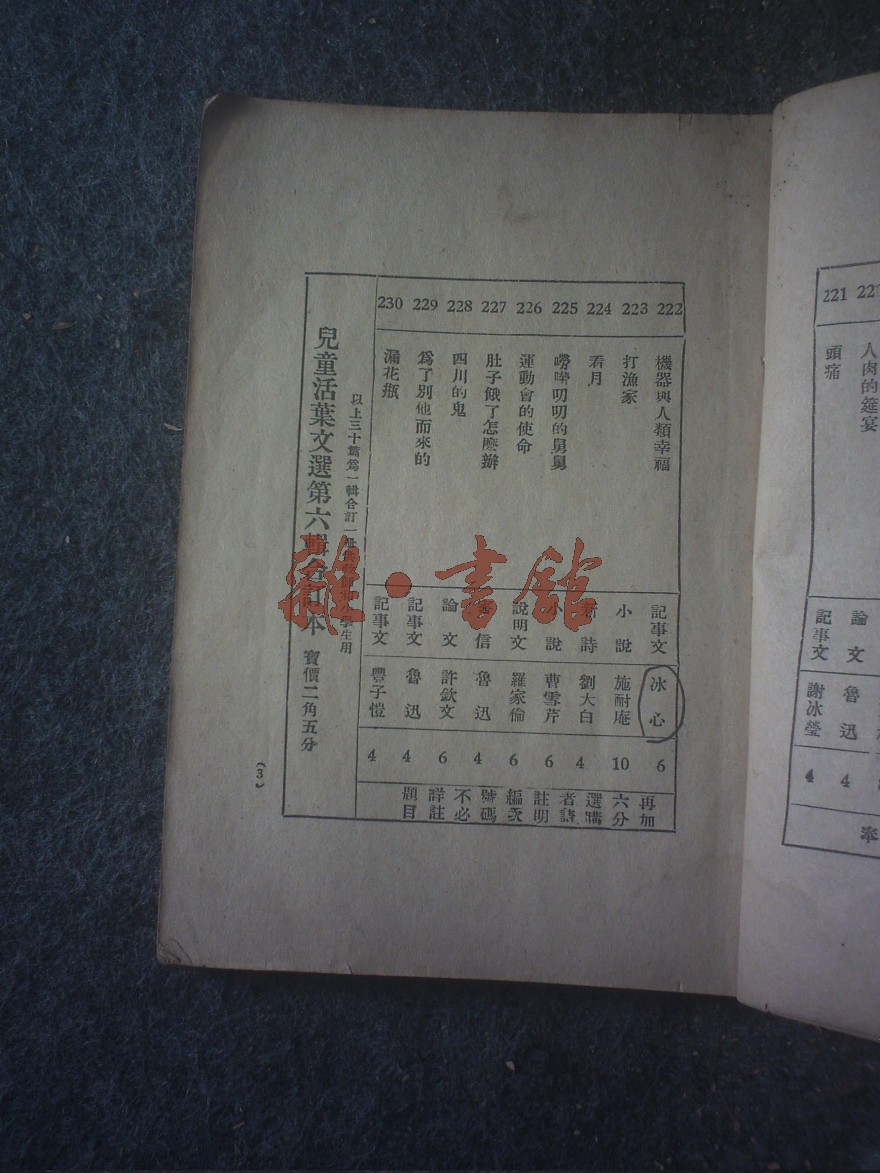 221
頭痛
記事文
謝冰瑩
4
人肉的筵宴
論文
魯迅
4
奉
222
機器與人類幸福
記事文
冰心
6
再加
223
打漁家
小說
施耐庵
10
六分
224
看月
新詩
劉大白
4
選購
225
嘮嘮叨叨的舅舅
小說
曹雪芹
6
者請
226
運動會的使命
說明文
羅家倫
6
註明
編次
227
肚子餓了怎麽辦
書信
魯迅
4
號碼
228
四川的鬼
論文
許欽文
6
不必
229
爲了別他而來的
記事文
魯迅
4
詳註
230
漏花瓶
記事文
豐子愷
4
題目
以上三十篇爲一輯合訂一冊
學生用
兒童活葉文選第六輯合訂本 實價二角五分
(3)
雜·書館